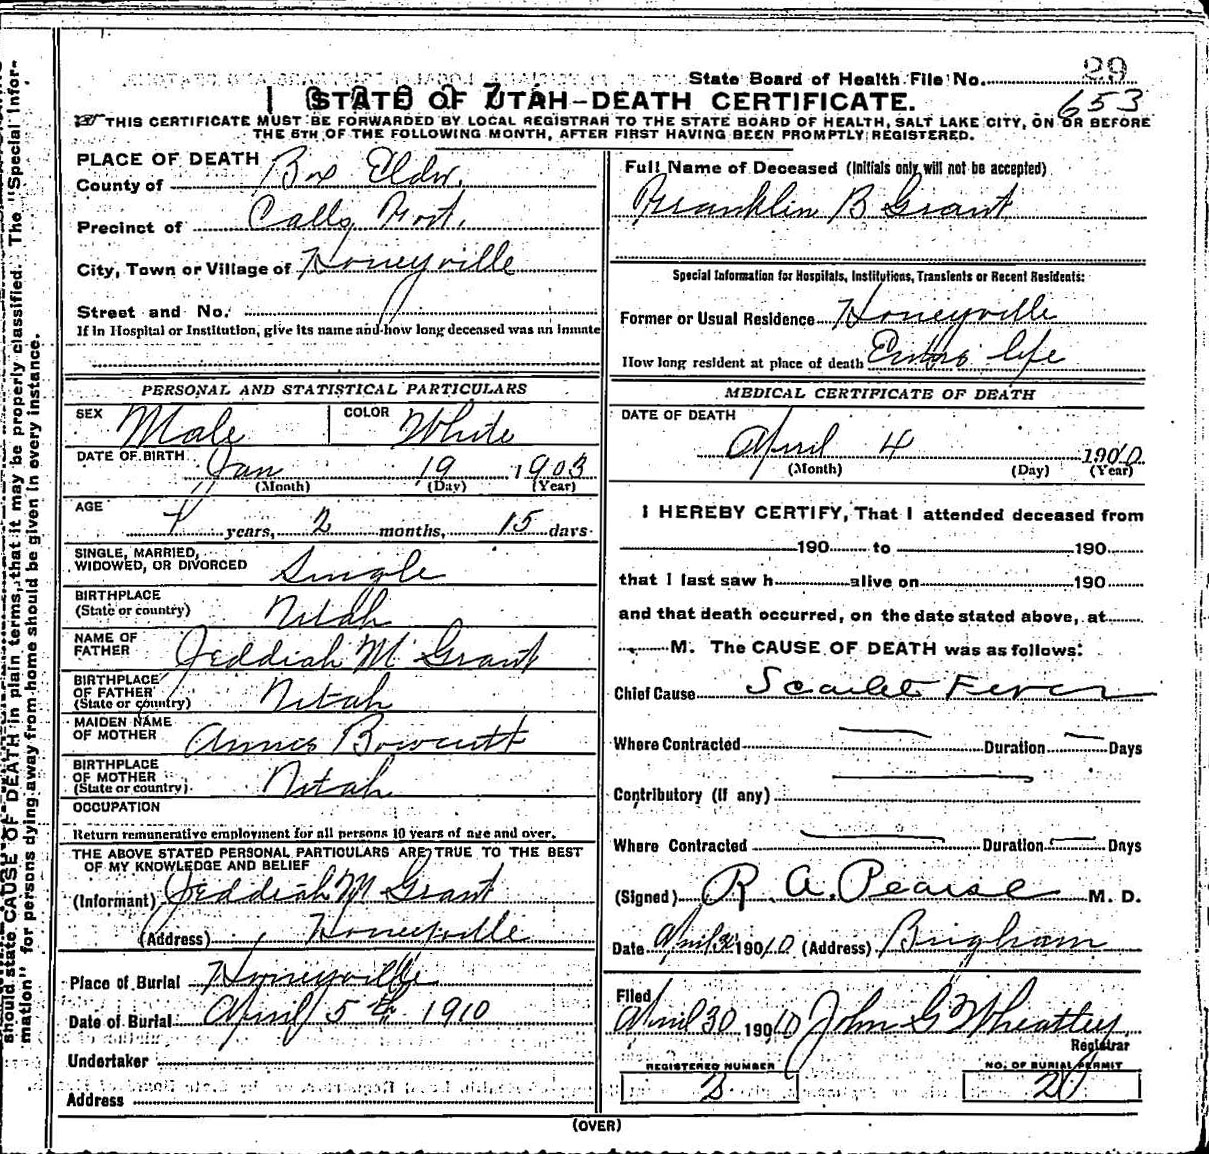 State Board of Health File No. 29
STATE OF UTAH—DEATH CERTIFICATE. 653
THIS CERTIFICATE MUST BE FORWARDED BY LOCAL REGISTRAR TO THE STATE BOARD OF HEALTH, SALT LAKE CITY, ON OR BEFORE
THE 5TH OF THE FOLLOWING MONTH, AFTER FIRST HAVING BEEN PROMPTLY REGISTERED.
PLACE OF DEATH
County of Box Elder.
Precinct of Calls Fort.
City, Town or Village of Honeyville
Street and No.
If in Hospital or Institution, give its name and how long deceased was an inmate
PERSONAL AND STATISTICAL PARTICULARS
SEX Male COLOR White
DATE OF BIRTH Jan 19 1903
(Month) (Day) (Year)
AGE
7 years, 2 months, 15 days
SINGLE, MARRIED,
WIDOWED, OR DIVORCED Single
BIRTHPLACE
(State or country) Utah
NAME OF
FATHER Jeddiah M Grant
BIRTHPLACE
OF FATHER
(State or country) Utah
MAIDEN NAME
OF MOTHER Bowcutt
BIRTHPLACE
OF MOTHER
(State or country) Utah
OCCUPATION
Return remunerative employment for all persons 10 years of age and over.
THE ABOVE STATED PERSONAL PARTICULARS ARE TRUE TO THE BEST
OF MY KNOWLEDGE AND BELIEF
(Informant) Jeddiah M Grant
(Address) Honeyville
Place of Burial Honeyville
Date of Burial April 5th 1910
Undertaker
Address
Full Name of Deceased (Initials only will not be accepted)
Franklin B Grant
Special Information for Hospitals, Institutions, Transients or Recent Residents:
Former or Usual Residence Honeyville
How long resident at place of death Entire life
MEDICAL CERTIFICATE OF DEATH
DATE OF DEATH
April 4 1910
(Month) (Day) (Year)
I HEREBY CERTIFY, That I attended deceased from
190 to 190
that I last saw h alive on 190
and that death occurred, on the date stated above, at
M. The CAUSE OF DEATH was as follows:
Chief Cause Scarlet Fever
Where Contracted Duration Days
Contributory (if any)
Where Contracted Duration Days
(Signed) R. A. Pearse M. D.
Date April 1910 (Address) Brigham
Filed
April 30 1910 John G Wheatley
Registrar
REGISTERED NUMBER NO. OF BURIAL PERMIT
(OVER)
should state CAUSE OF DEATH in plain terms, that it may be properly classified. The "Special Infor-
mation" for persons dying away from home should be given in every instance.